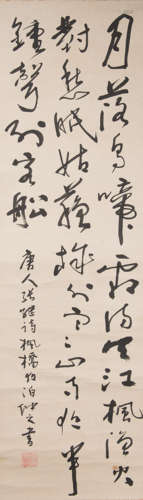 月落烏啼霜滿天江楓漁火
對愁眠姑蘇城外寒山寺夜半
鐘聲到客船
唐人張繼詩楓橋夜泊 書